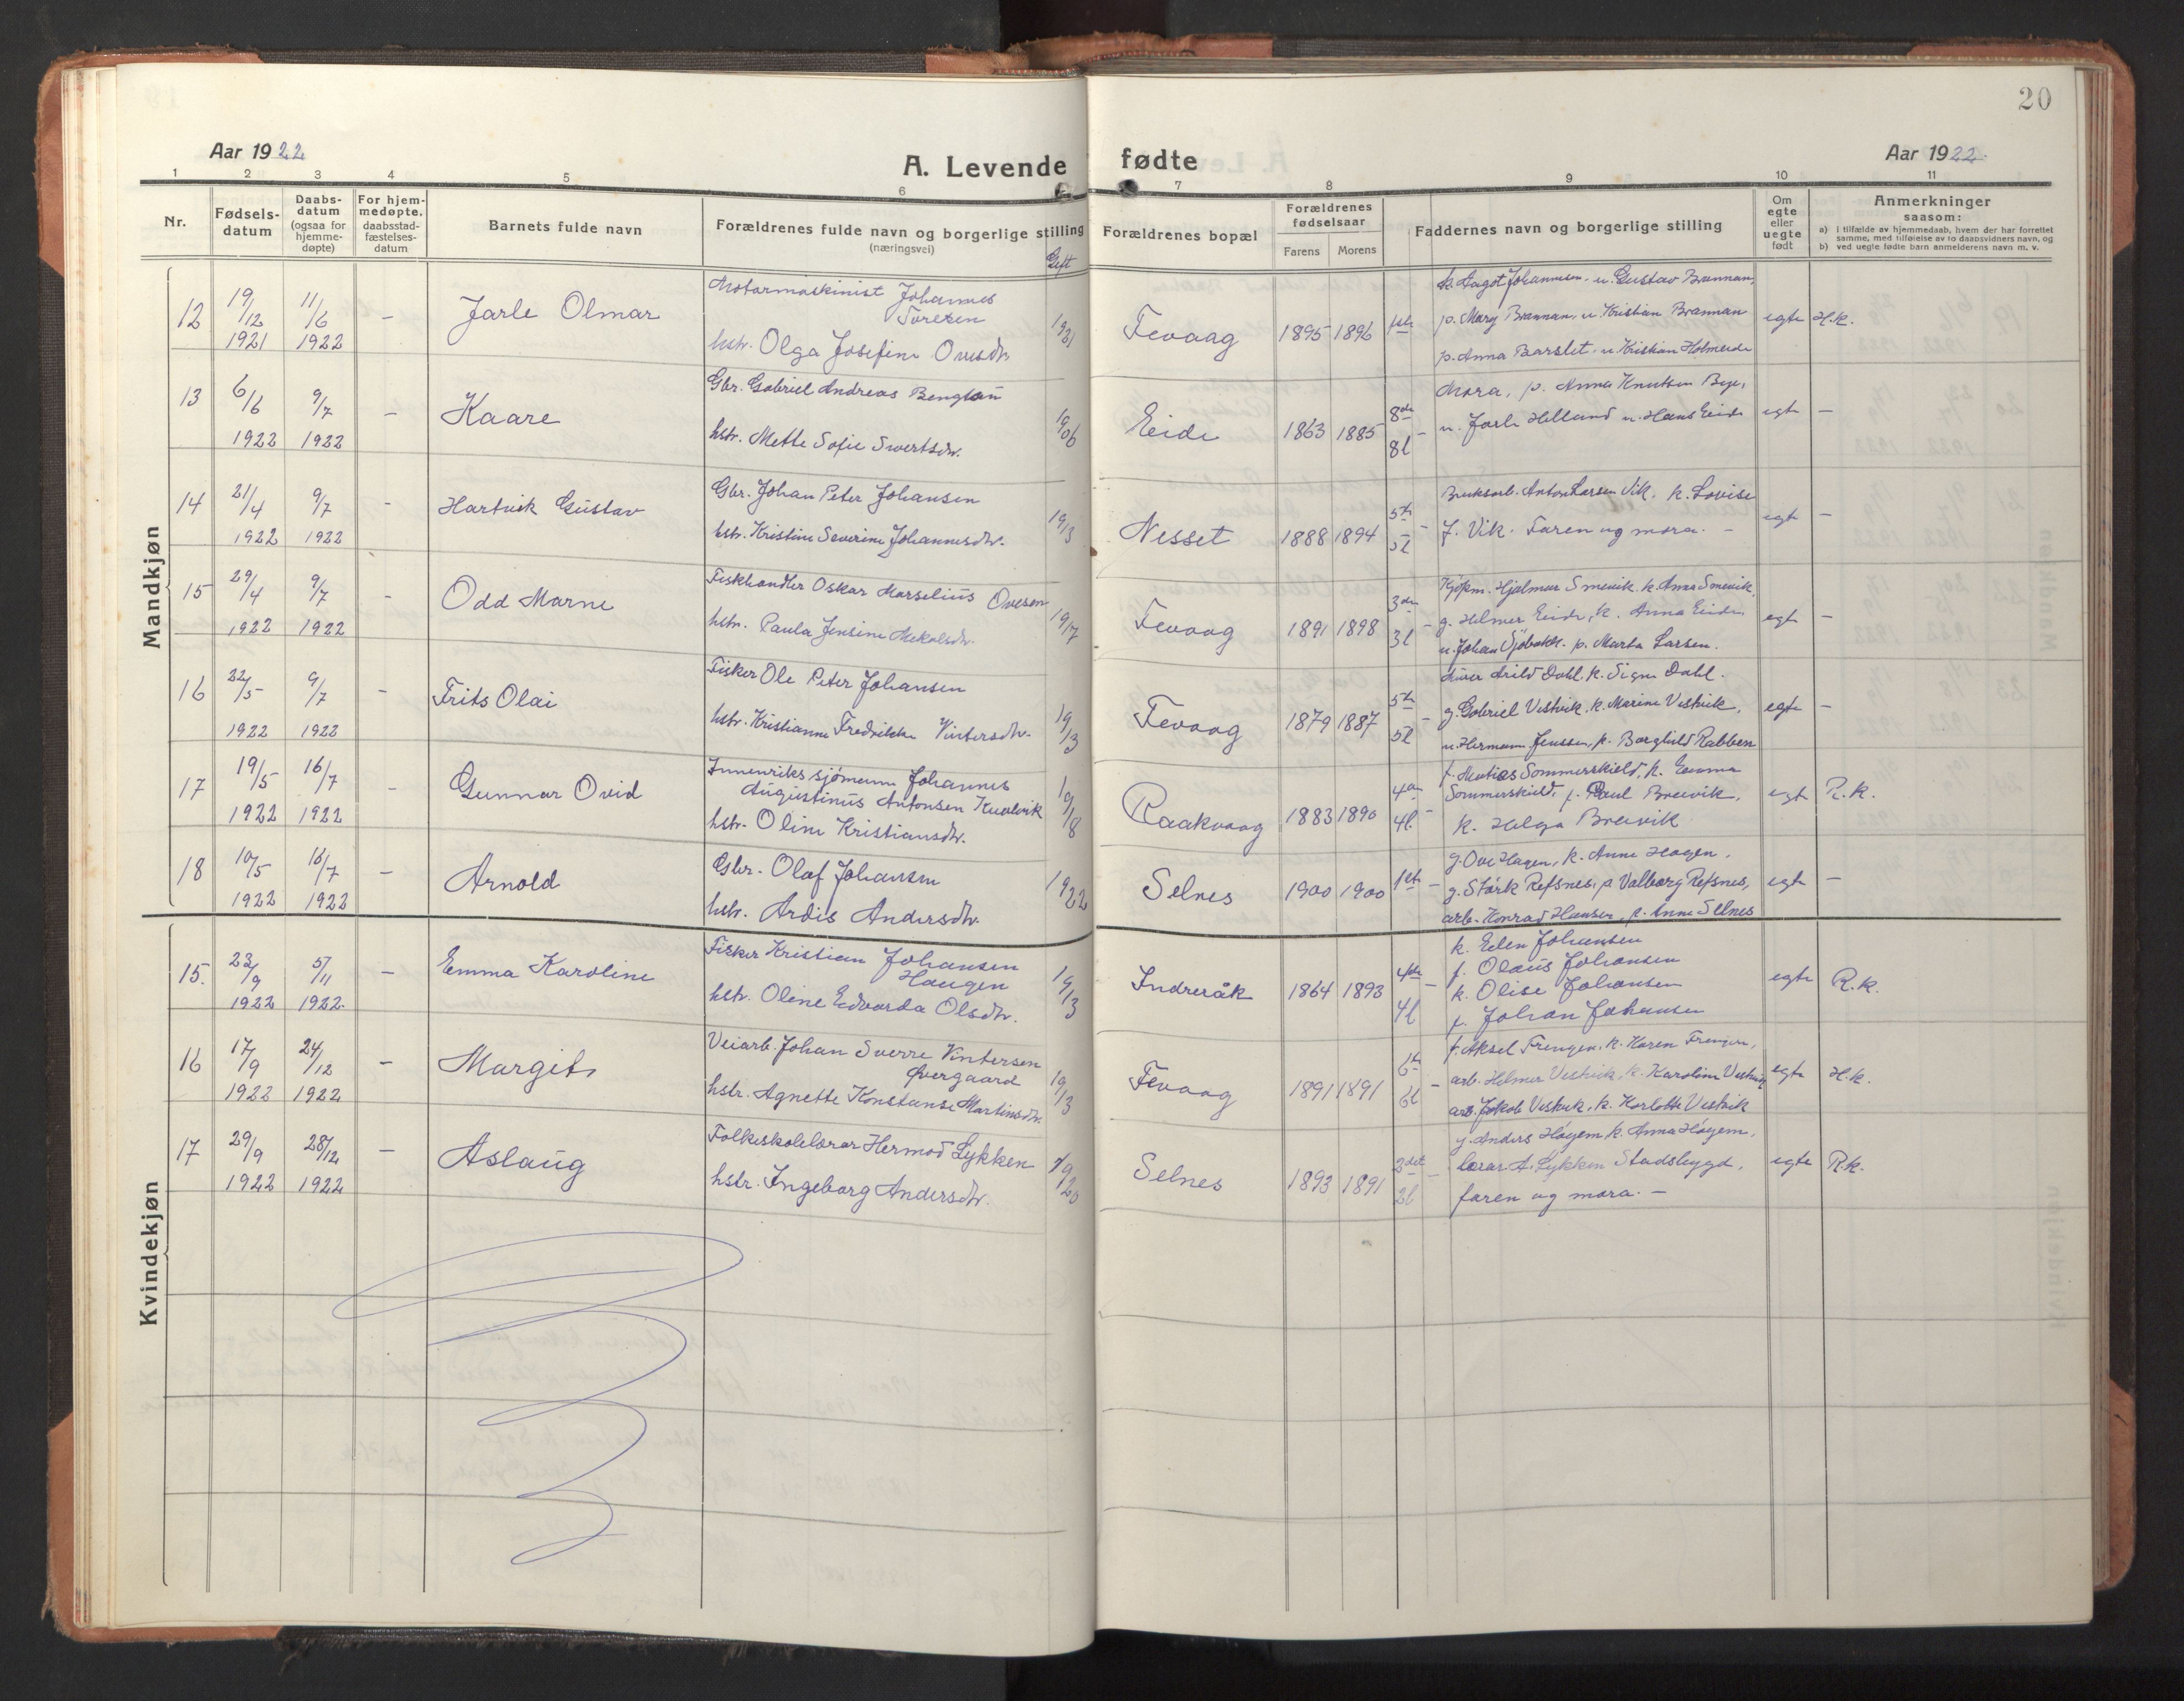 20
Aar 1922
A. Levende fødte
Aar 1922
1 2 3 4 5 6 7 8 9 10 11
Nr.
Fødsels-
datum
Daabs-
datum
(ogsaa for
hjemme-
døpte)
For hjem-
medøpte,
daabsstad-
fæstelses-
datum
Barnets fulde navn
Forældrenes fulde navn og borgerlige stilling
(næringsvei)
Gift
Forældrenes bopæl
Forældrenes
fødselsaar
Farens Morens
Faddernes navn og borgerlige stilling
Om
egte
eller
uegte
født
Anmerkninger
saasom:
a) i tilfælde av hjemmedaab, hvem der har forrettet
samme, med tilføielse av to daabsvidners navn, og
b) ved uegte fødte barn anmelderens navn m. v.
Mandkjøn
12 19/12 1921 11/6 1922 – Jarle Olmar
Motormaskinist Johannes
Toresen
hstr. Olga Josefine Ovesdtr. 1921
Fevaag 1895 1896 1ste
k. Aagot Johannesen. u. Gustav Brannan,
p. Mary Brannan, u. Kristian Brannan
p. Anna Barslet. u. Kristian Holmeide
egte H.k.
13 6/6 1922 9/7 1922 – Kaare
Gbr. Gabriel Andreas Bengtson
hstr. Mette Sofie Sivertsdtr. 1906
Eide 1863 1885 8de – 8l
Mora, p. Anna Knutsen Bye,
u. Jarle Helland u. Hans Eide
egte –
14 21/4 1922 9/7 1922 – Hartvik Gustav
Gbr. Johan Peter Johansen
hstr. Kristine Severine Johannesdtr. 1913
Nesset 1888 1894 5te – 5l
Bruksarb. Anton Larsen Vik. k. Lovise
J. Vik. Faren og mora. –
egte –
15 29/4 1922 9/7 1922 – Odd Marne
Fiskhandler Oskar Marselius Ovesen
hstr. Paula Jensine Mekalsdtr. 1917
Fevaag 1891 1898 3de – 3l
Kjøpm. Hjalmar Smevik. k. Anna Smevik,
g. Helmer Eide, k. Anna Eide,
u. Johan Sjøbakk. p. Marta Larsen.
egte –
16 22/5 1922 9/7 1922 – Frits Olai
Fisker Ole Peter Johansen
hstr. Kristianne Fredrikke Vintersdtr. 1913
Fevaag 1879 1887 5te – 5l
Arild Dahl. k. Signe Dahl.
g. Gabriel Vestvik, k. Marine Vestvik,
u. Hermann Jenssen, p. Borghild Rabben
egte –
17 19/5 1922 16/7 1922 – Gunnar Ovid
Innenriks sjømann Johannes
Augustinus Antonsen Kvalvik
hstr. Oline Kristiansdtr. 1918
Raakvaag 1883 1890 4de – 4l.
f. Mathias Sommerskield, k. Emma
Sommerskield, f. Paul Breivik,
k. Helga Breivik
egte R.k.
18 10/5 1922 16/7 1922 – Arnold
Gbr. Olaf Johansen
hstr. Ardis Andersdtr. 1922
Selnes 1900 1900 1ste –
g. Ove Hagen, k. Anne Hagen,
g. Stärk Refsnes, p. Valborg Refsnes,
arb. Konrad Hansen, p. Anne Selnes
egte –
Kvindekjøn
15. 23/9 1922 5/11 1922. – Emma Karoline
Fisker Kristian Johansen
Haugen
hstr. Oline Edvarda Olsdtr. 1913
Indreråk 1864 1893 4de – 4l
k. Elen Johansen
f. Olaus Johansen
k. Olise Johansen
f. Johan Johansen
egte R.k.
16 17/9 1922 24/12 1922 – Margit
Veiarb. Johan Sverre Vintersen
Øvergaard
hstr. Agnette Konstanse Martinsdtr. 1913
Fevaag 1891 1891 6te – 6l
f. Aksel Frengen, k. Karen Frengen,
arb. Helmer Vestvik, k. Karoline Vestvik
arb. Jakob Vestvik, k. Karlotte Vestvik
egte H.k.
17 29/9 1922 28/12 1922 – Aslaug
Folkeskolelærar Hermod Lykken
hstr. Ingeborg Andersdtr. 1920
Selnes 1893 1891 2det – 2l
g. Anders Høgem, k. Anna Høgem,
lærar A. Lykken Stadsbygd,
faren og mora. –
egte R.k.